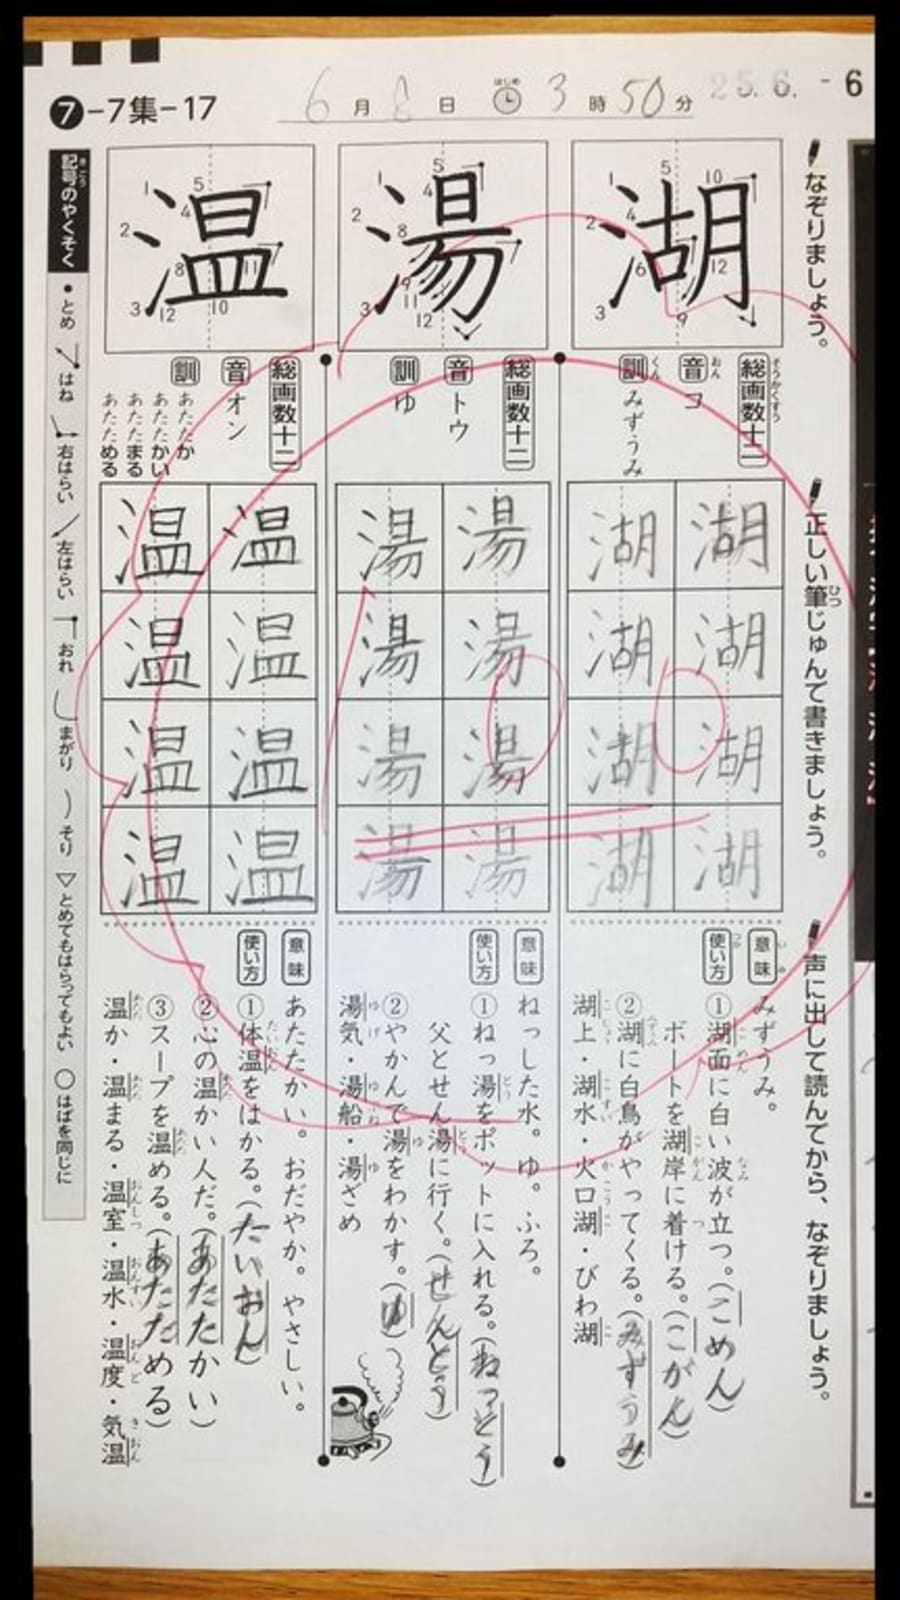 ❼-7集-17
6月8日 3時50分
はじめ
25.6.-6
なぞりましょう。
正しい筆じゅんで書きましょう。
ひつ
声に出して読んでから、なぞりましょう。
湖
総画数十二
そうかくすう
音 コ
おん
訓 みずうみ
くん
湖 湖 湖 湖
湖 湖 湖 湖
意味 みずうみ。
いみ
使い方 ①湖面に白い波が立つ。(こめん)
ボートを湖岸に着ける。(こがん)
②湖に白鳥がやってくる。(みずうみ)
湖上・湖水・火口湖・びわ湖
湯
総画数十二
音 トウ
訓 ゆ
湯 湯 湯 湯
湯 湯 湯 湯
意味 ねっした水。ゆ。ふろ。
使い方 ①ねっ湯をポットに入れる。(ねっとう)
父とせん湯に行く。(せんとう)
②やかんで湯をわかす。(ゆ)
湯気・湯船・湯ざめ
温
総画数十二
音 オン
訓 あたたか
あたたかい
あたたまる
あたためる
温 温 温 温
温 温 温 温
意味 あたたかい。おだやか。やさしい。
使い方 ①体温をはかる。(たいおん)
②心の温かい人だ。(あたたかい)
③スープを温める。(あたためる)
温か・温まる・温室・温水・温度・気温
記号のやくそく
きごう
とめ はね 右はらい 左はらい おれ まがり そり ▽とめてもはらってもよい ○はばを同じに
100